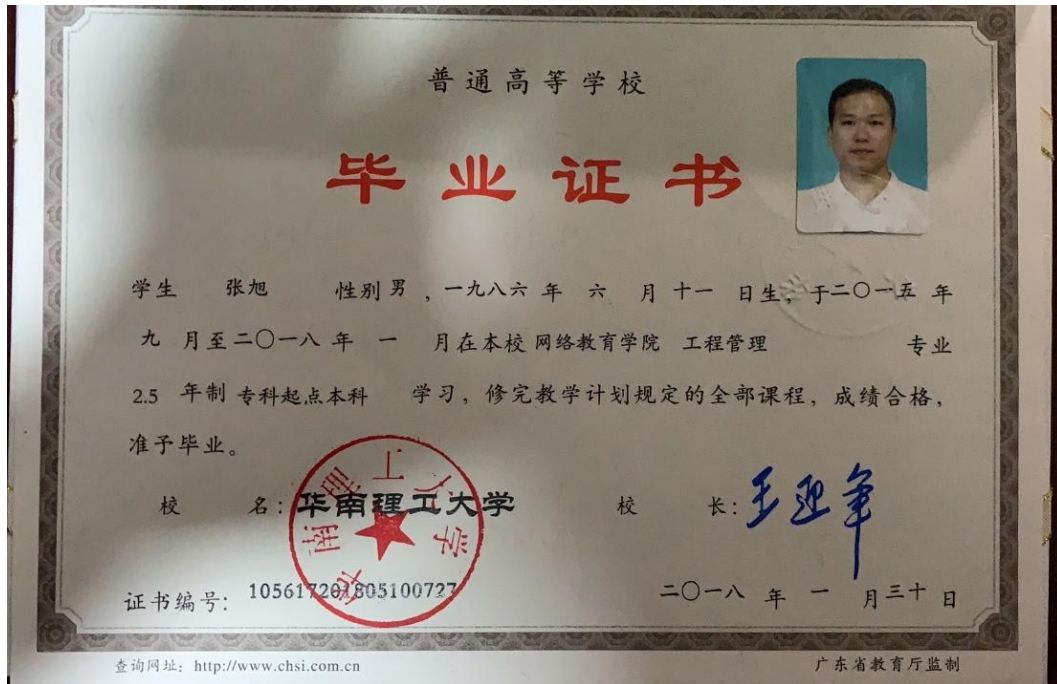 普通高等学校
毕业证书
学生 张旭 性别 男 ,一九八六 年 六 月 十一 日生, 于二〇一五 年
九 月至二〇一八 年 一 月在本校 网络教育学院 工程管理 专业
2.5 年制 专科起点本科 学习, 修完教学计划规定的全部课程, 成绩合格,
准予毕业。
校 名: 华南理工大学 校 长: 王迎军
华南理工大学
证书编号: 105617201805100727 二〇一八 年 一 月 三十 日
查询网址: http://www.chsi.com.cn 广东省教育厅监制